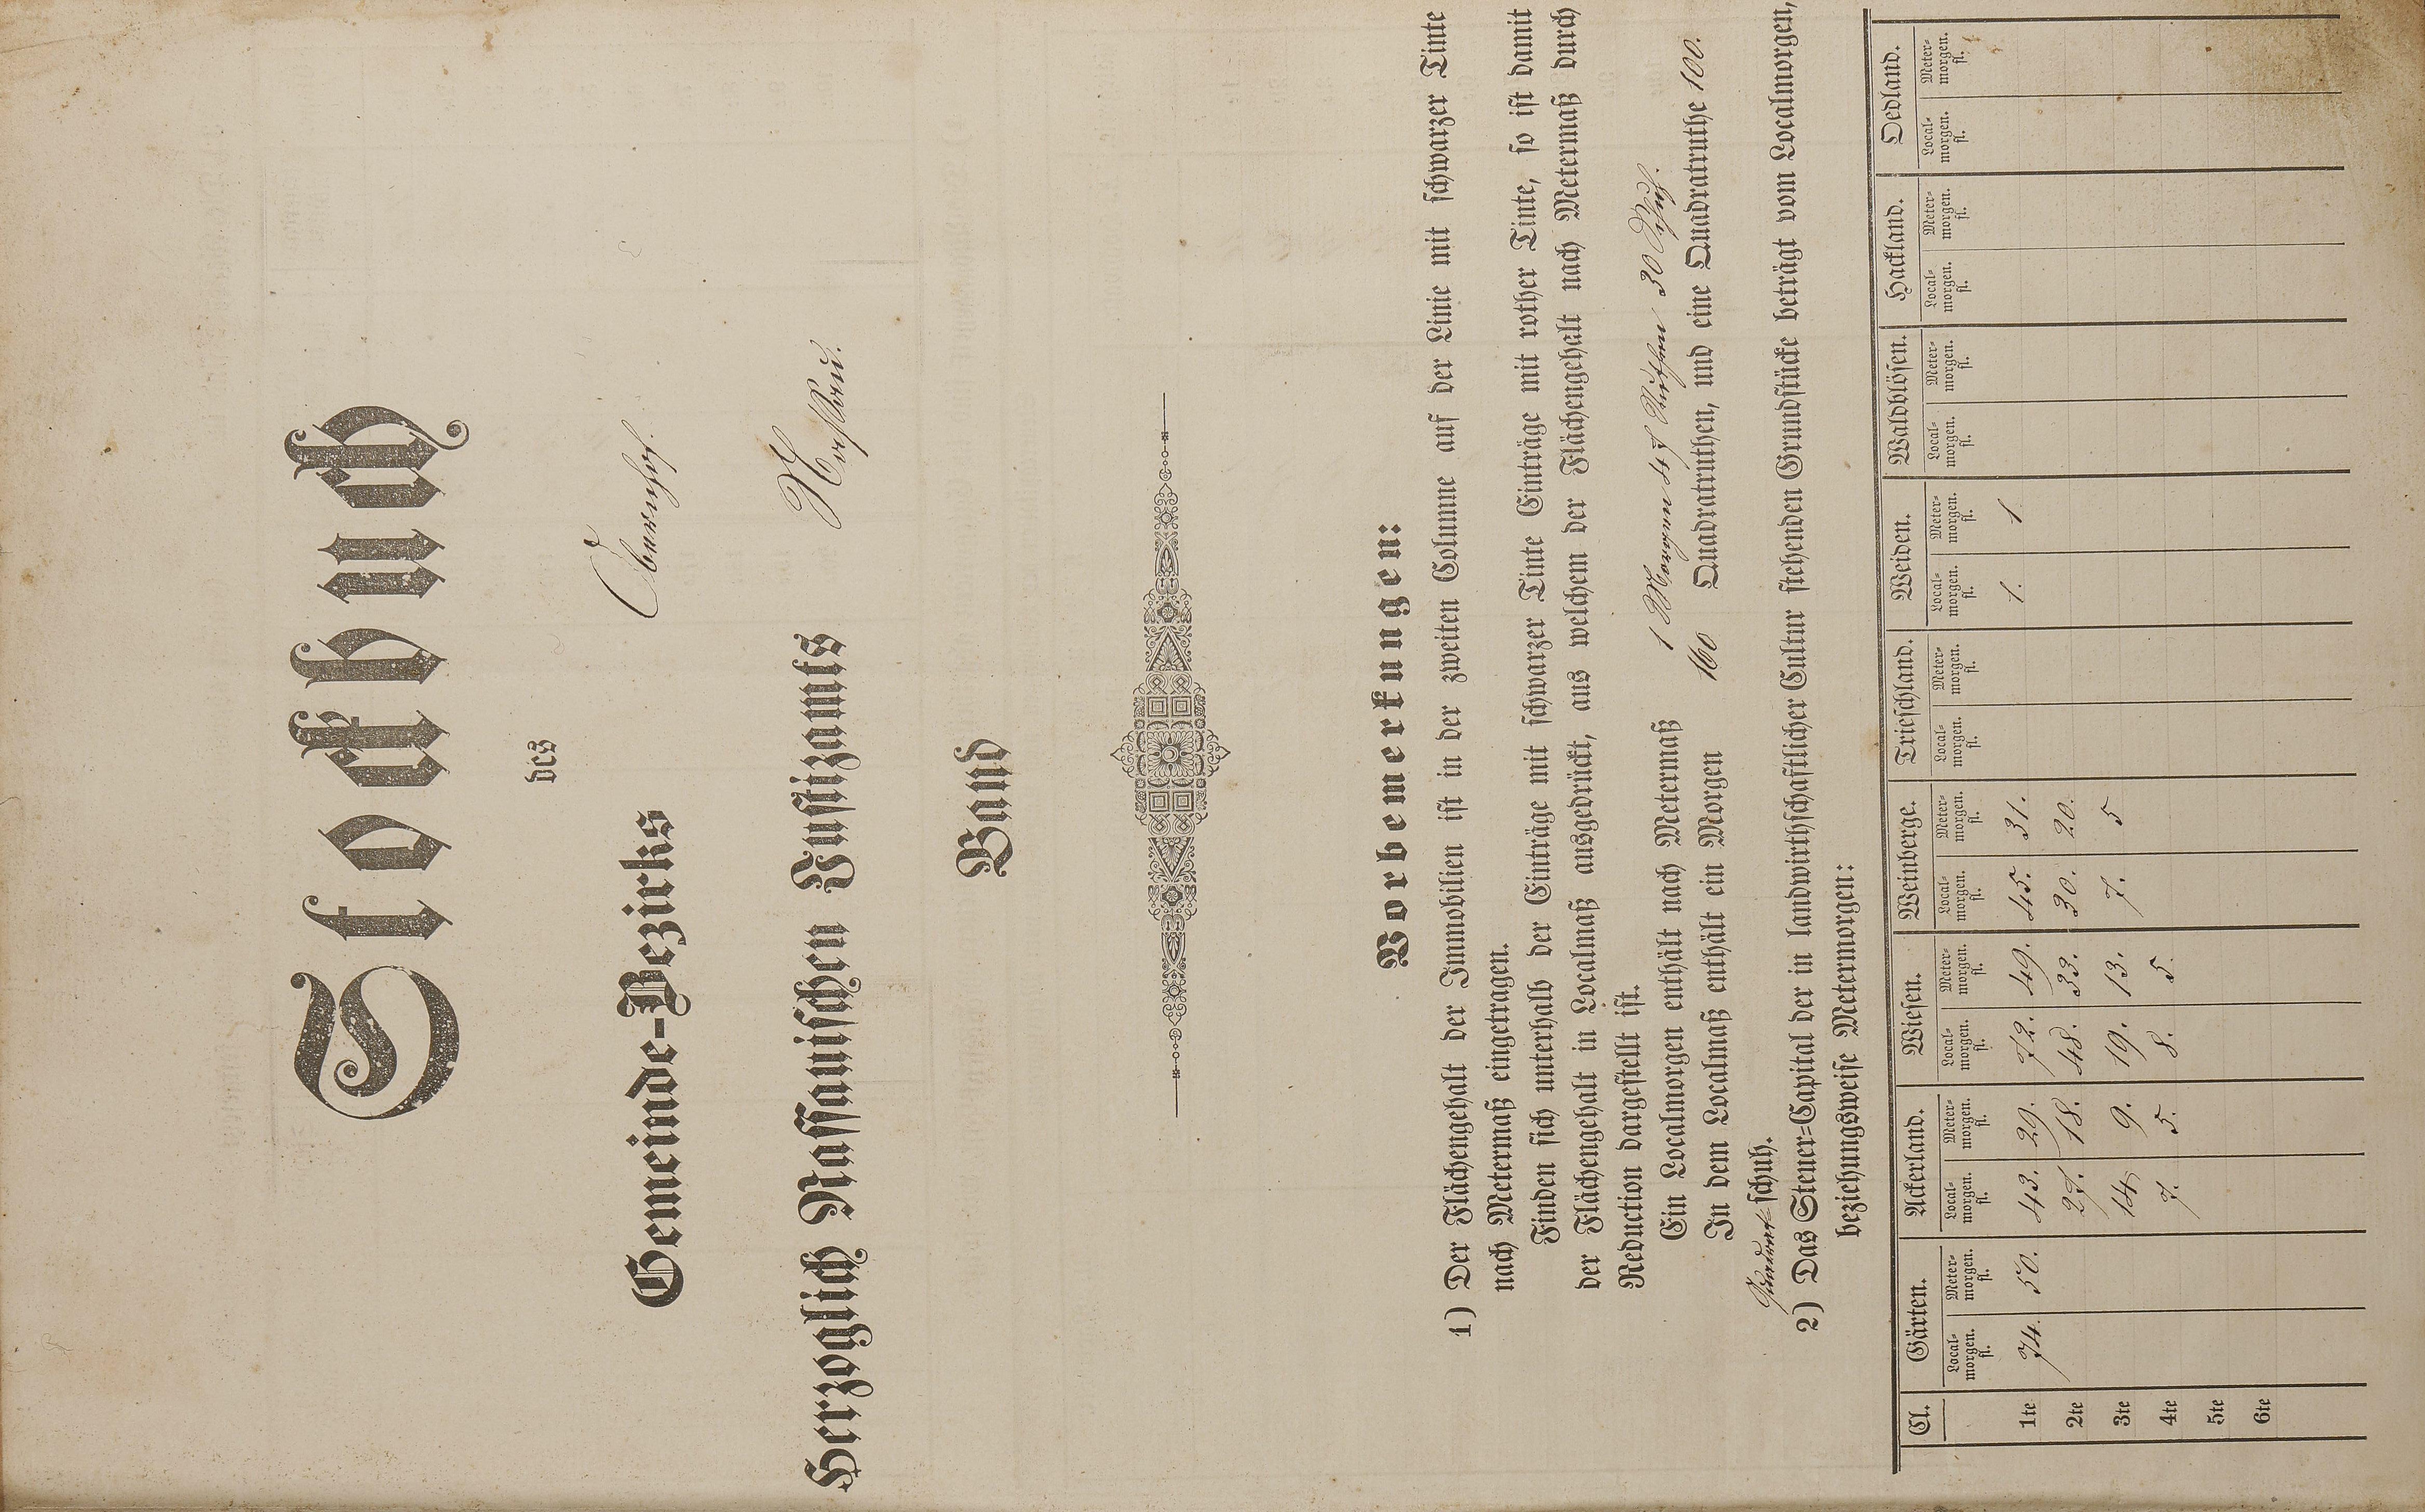 Stockbuch
des
Gemeinde-Bezirks Obernhof.
Herzoglich Nassauischen Justizamts Nassau.
Band
Vorbemerkungen:
1) Der Flächengehalt der Immobilien ist in der zweiten Columne auf der Linie mit schwarzer Tinte
nach Metermaß eingetragen.
Finden sich unterhalb der Einträge mit schwarzer Tinte Einträge mit rother Tinte, so ist damit
der Flächengehalt in Localmaß ausgedrückt, aus welchem der Flächengehalt nach Metermaß durch
Reduction dargestellt ist.
Ein Localmorgen enthält nach Metermaß 1 Morgen 47 Ruthen 30 Schuh.
In dem Localmaß enthält ein Morgen 160 Quadratruthen, und eine Quadratruthe 100.
Quadrat-schuh.
2) Das Steuer-Capital der in landwirthschaftlicher Cultur stehenden Grundstücke beträgt vom Localmorgen,
beziehungsweise Metermorgen:
Cl. Gärten. Ackerland. Wiesen. Weinberge. Trieschland. Weiden. Waldblösen. Hackland. Oedland.
Local-morgen. fl. Meter-morgen. fl. Local-morgen. fl. Meter-morgen. fl. Local-morgen. fl. Meter-morgen. fl. Local-morgen. fl. Meter-morgen. fl. Local-morgen. fl. Meter-morgen. fl. Local-morgen. fl. Meter-morgen. fl. Local-morgen. fl. Meter-morgen. fl. Local-morgen. fl. Meter-morgen. fl. Local-morgen. fl. Meter-morgen. fl.
1te 74. 50. 43. 29. 72. 49. 45. 31. 1. 1.
2te 27. 18. 48. 33. 30. 20.
3te 14 9. 19. 13. 7. 5
4te 7. 5. 8. 5.
5te
6te